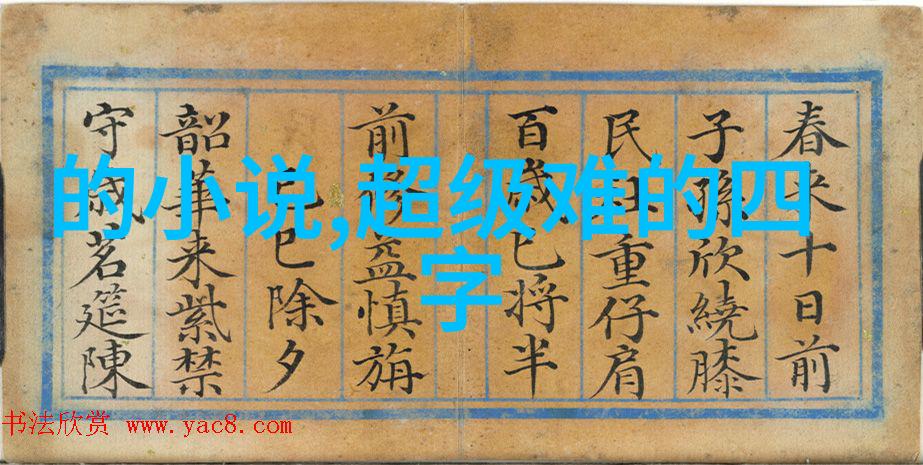 春来十日前
子孫欣繞膝
民重仔肩
百歲已将半
前益慎旃
己巳除夕
韶華来紫禁
守歲茗筵陳
的小说,超级难的四
字
书法欣赏 www.yac8.com